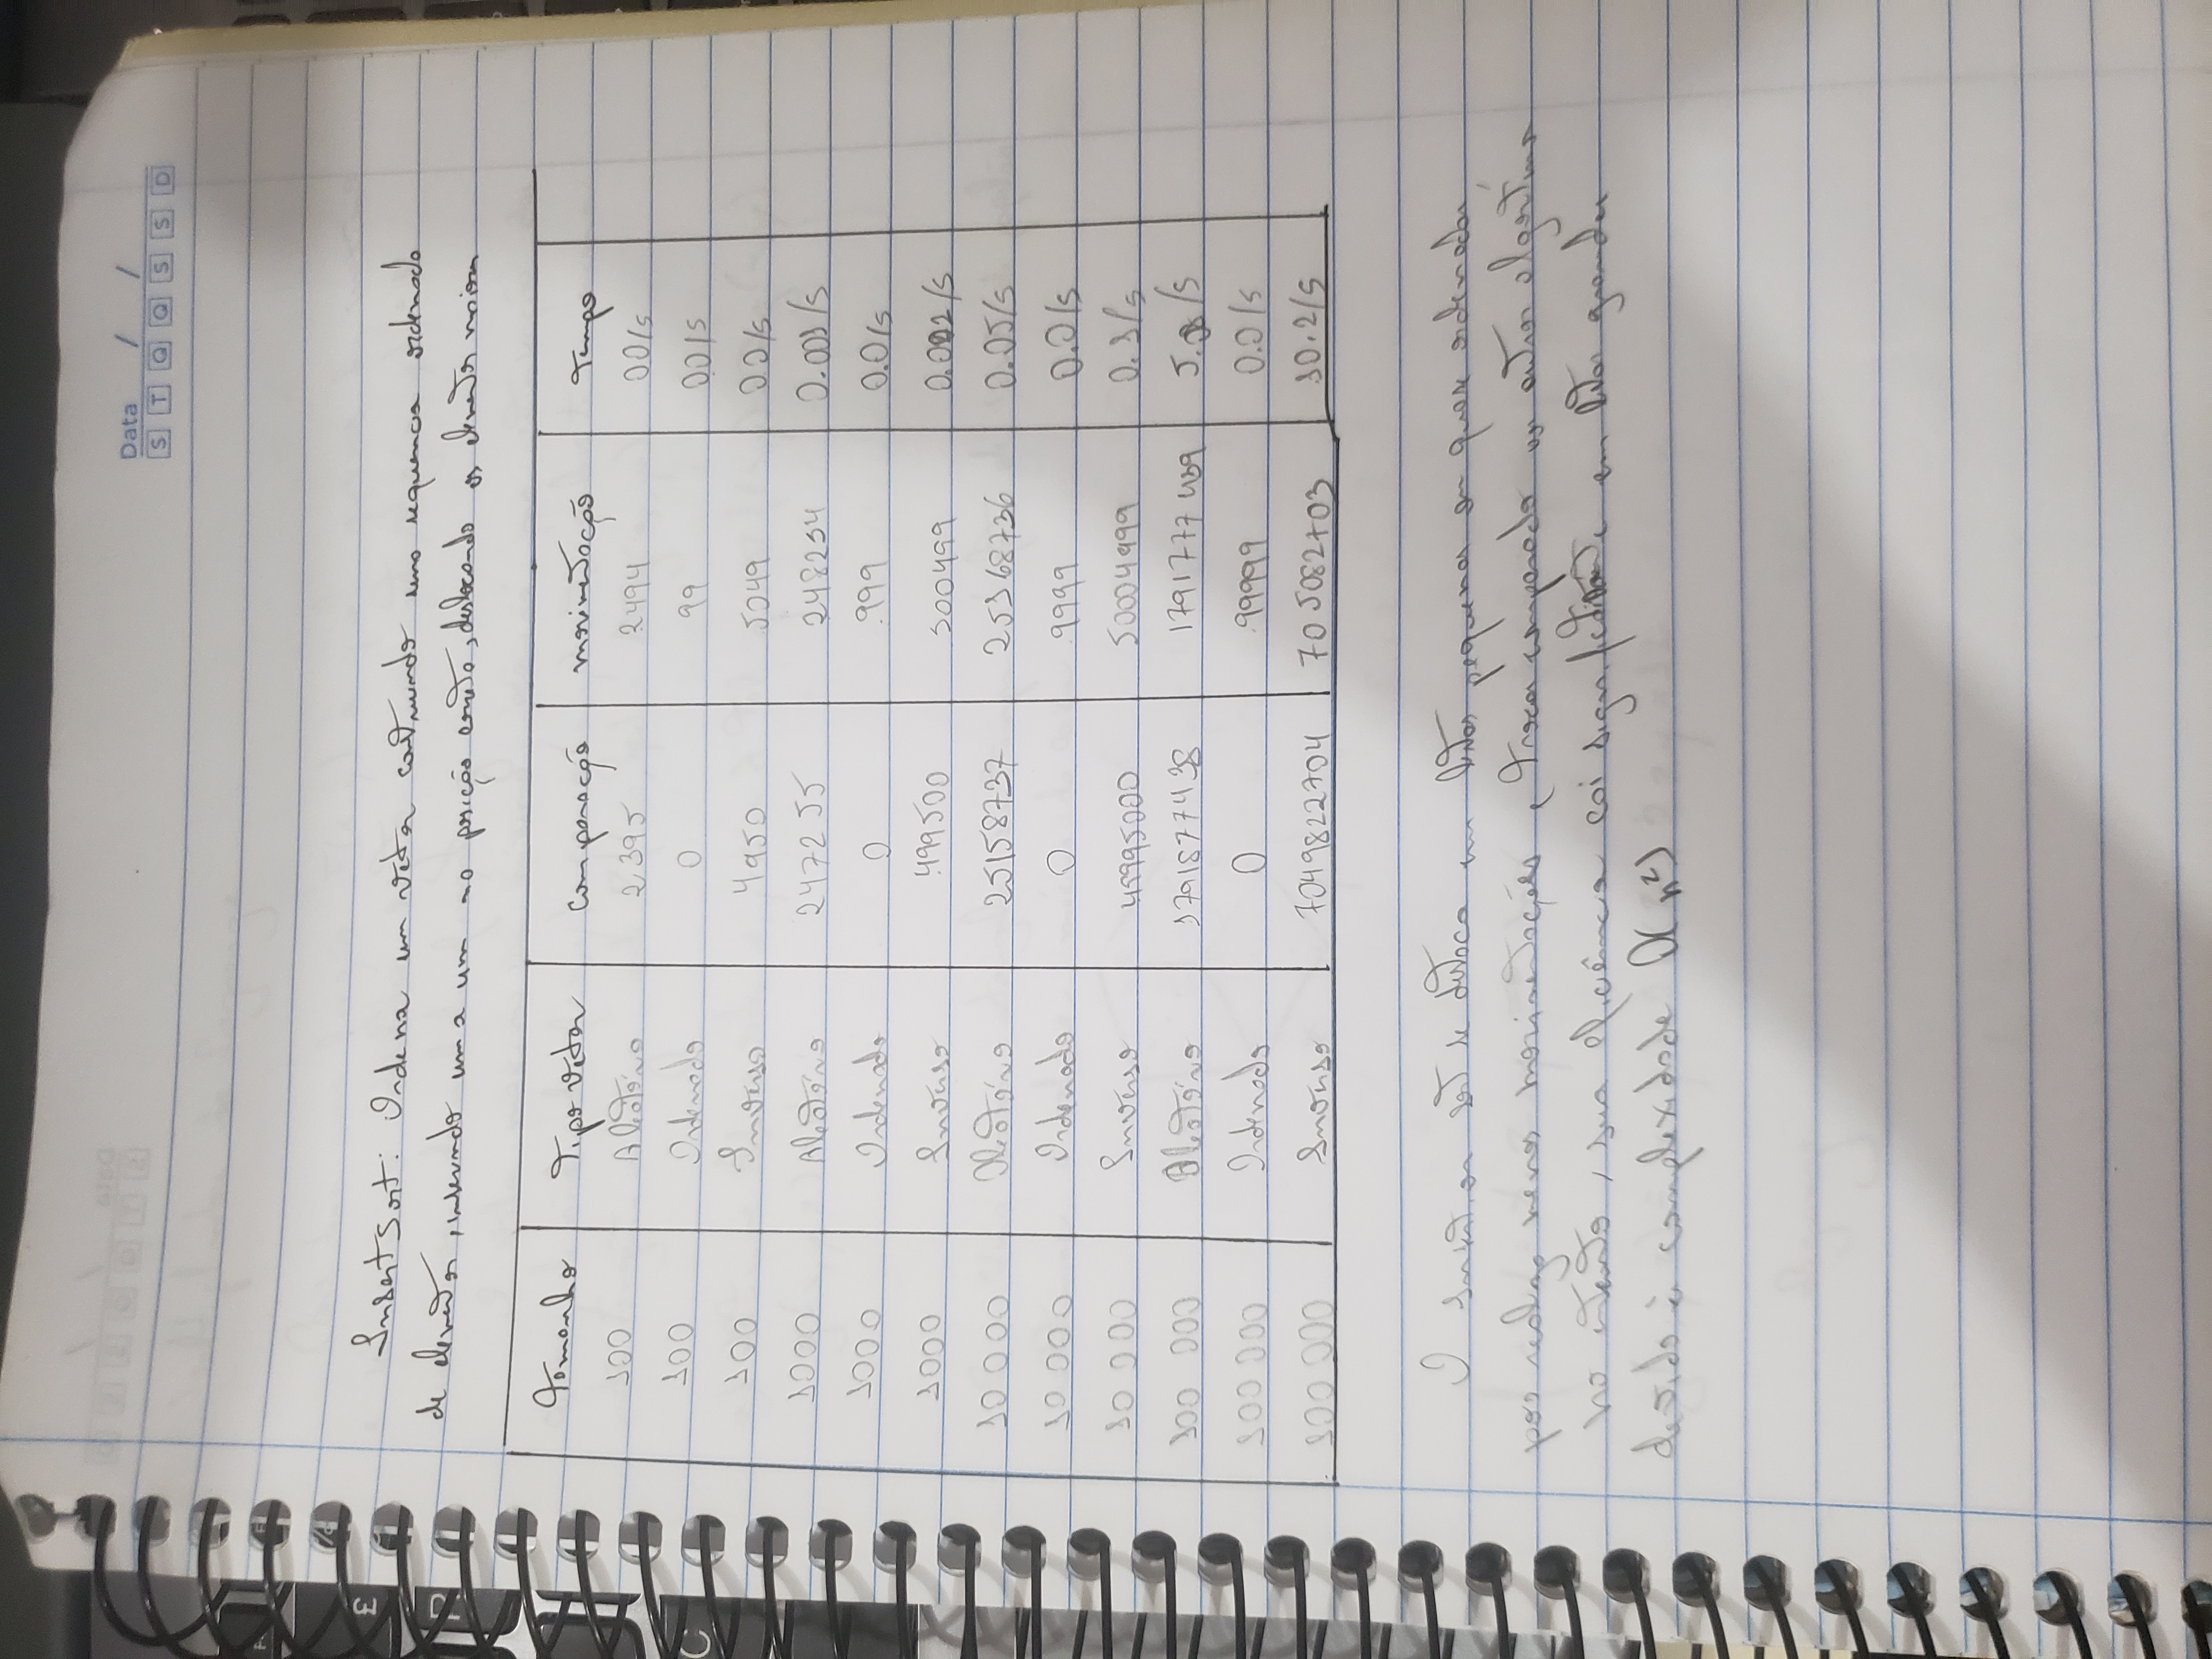 Data / /
S T Q Q S S D
InsertSort: Ordena um vetor construindo uma sequencia ordenada
de elementos, inserindo um a um na posição correta, deslocando os elementos maiores
Tamanho Tipo vetor comparação movimentação Tempo
100 Aleatório 2395 2494 00/s
100 Ordenado 0 99 00/s
100 Inverso 4950 5049 00/s
1000 Aleatório 247255 248254 0.001/s
1000 Ordenado 0 999 0.0/s
1000 Inverso 499500 500499 0.002/s
10 000 Aleatório 25158737 25168736 0.05/s
10 000 Ordenado 0 9999 0.0/s
10 000 Inverso 49995000 50004999 0.1/s
100 000 Aleatório 1791877438 1791777439 /s
100 000 Ordenado 0 99999 0.0/s
100 000 Inverso 7049822704 705082703 10.2/s
O insertion sort se destaca em listas pequenas ou quase ordenadas,
pois realiza menos movimentações e trocas comparado aos outros algoritmos
no entanto, sua eficiência cai significativamente em listas grandes
devido à complexidade O(n²)